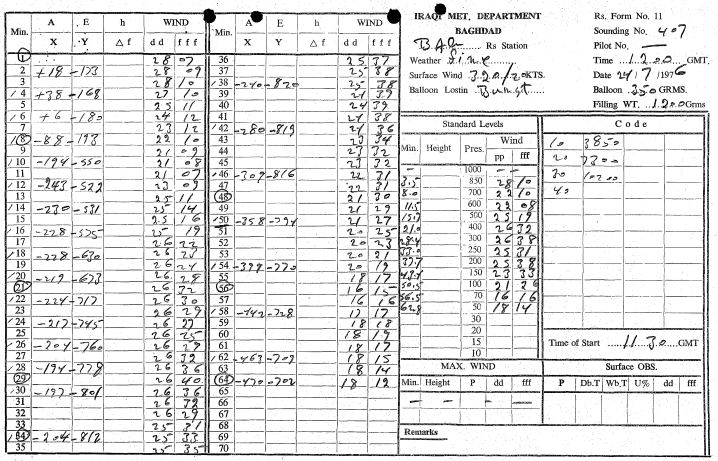 IRAQI MET. DEPARTMENT
BAGHDAD
Rs Station
Weather Fine
Surface Wind 320/20 KTS.
Balloon Lostin Burst
Rs. Form No. 11
Sounding No. 407
Pilot No. —
Time 1200 GMT
Date 24/7/1976
Balloon 350 GRMS.
Filling WT. 1200 Grms
Min. A X E Y h Δ f WIND d d f f f
1 28 07
2 +18 -173 28 09
3 28 10
4 +38 -168 27 10
5 25 11
6 +6 -180 24 12
7 23 12
8 -88 -193 22 10
9 21 09
10 -194 -550 21 08
11 21 07
12 -243 -522 23 09
13 25 11
14 -230 -531 25 14
15 25 16
16 -228 -575 25 19
17 26 22
18 -228 -630 26 25
19 26 24
20 -219 -673 26 28
21 26 32
22 -224 -717 26 30
23 26 29
24 -217 -745 26 27
25 26 25
26 -204 -760 26 29
27 26 32
28 -194 -778 26 36
29 26 40
30 -197 -801 26 36
31 26 32
32 26 29
33 25 31
34 -204 -812 25 33
35 25 35
Min. A X E Y h Δ f WIND d d f f f
36 25 37
37 25 38
38 -240 -820 25 38
39 24 39
40 24 39
41 24 38
42 -280 -819 24 36
43 23 34
44 23 32
45 23 32
46 -309 -816 22 31
47 22 31
48 21 30
49 21 29
50 -358 -794 21 27
51 20 25
52 20 23
53 20 21
54 -399 -770 20 19
55 18 17
56 16 15
57 16 16
58 -442 -728 17 17
59 18 18
60 18 19
61 18 17
62 -463 -709 18 15
63 18 14
64 -470 -702 18 12
65
66
67
68
69
70
Standard Levels
Min. Height Pres. Wind pp fff
— 1000 — —
3.5 850 28 10
8.0 700 22 10
11.5 600 22 08
15.7 500 25 19
21.0 400 26 32
28.4 300 26 38
33.0 250 25 31
37.7 200 25 38
43.7 150 23 33
50.5 100 21 26
56.5 70 16 16
62.8 50 18 14
30
20
15
10
Code
10 3850
20 7300
30 10200
40
Time of Start 11.30 GMT
MAX. WIND
Min. Height P dd fff
— — — —
Surface OBS.
P Db.T Wb.T U% dd fff
Remarks